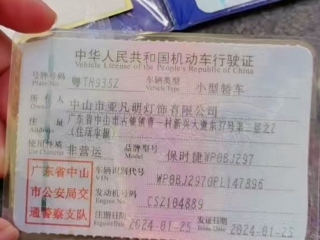 中华人民共和国机动车行驶证
Vehicle License of the People's Republic of China
号牌号码 粤TH9352 车辆类型 小型轿车
Plate No. Vehicle Type
所有人 中山市亚凡明灯饰有限公司
广东省中山市古镇镇曹一村新兴大道东37号第二层之2
(住所申报)
使用性质 非营运 品牌型号 保时捷WP0BJ297
广东省中山
市公安局交
通警察支队
车辆识别代号 WP0BJ2970PL147896
VIN
发动机号码 CS2104889
注册日期 2024-01-25 发证日期 2024-01-25